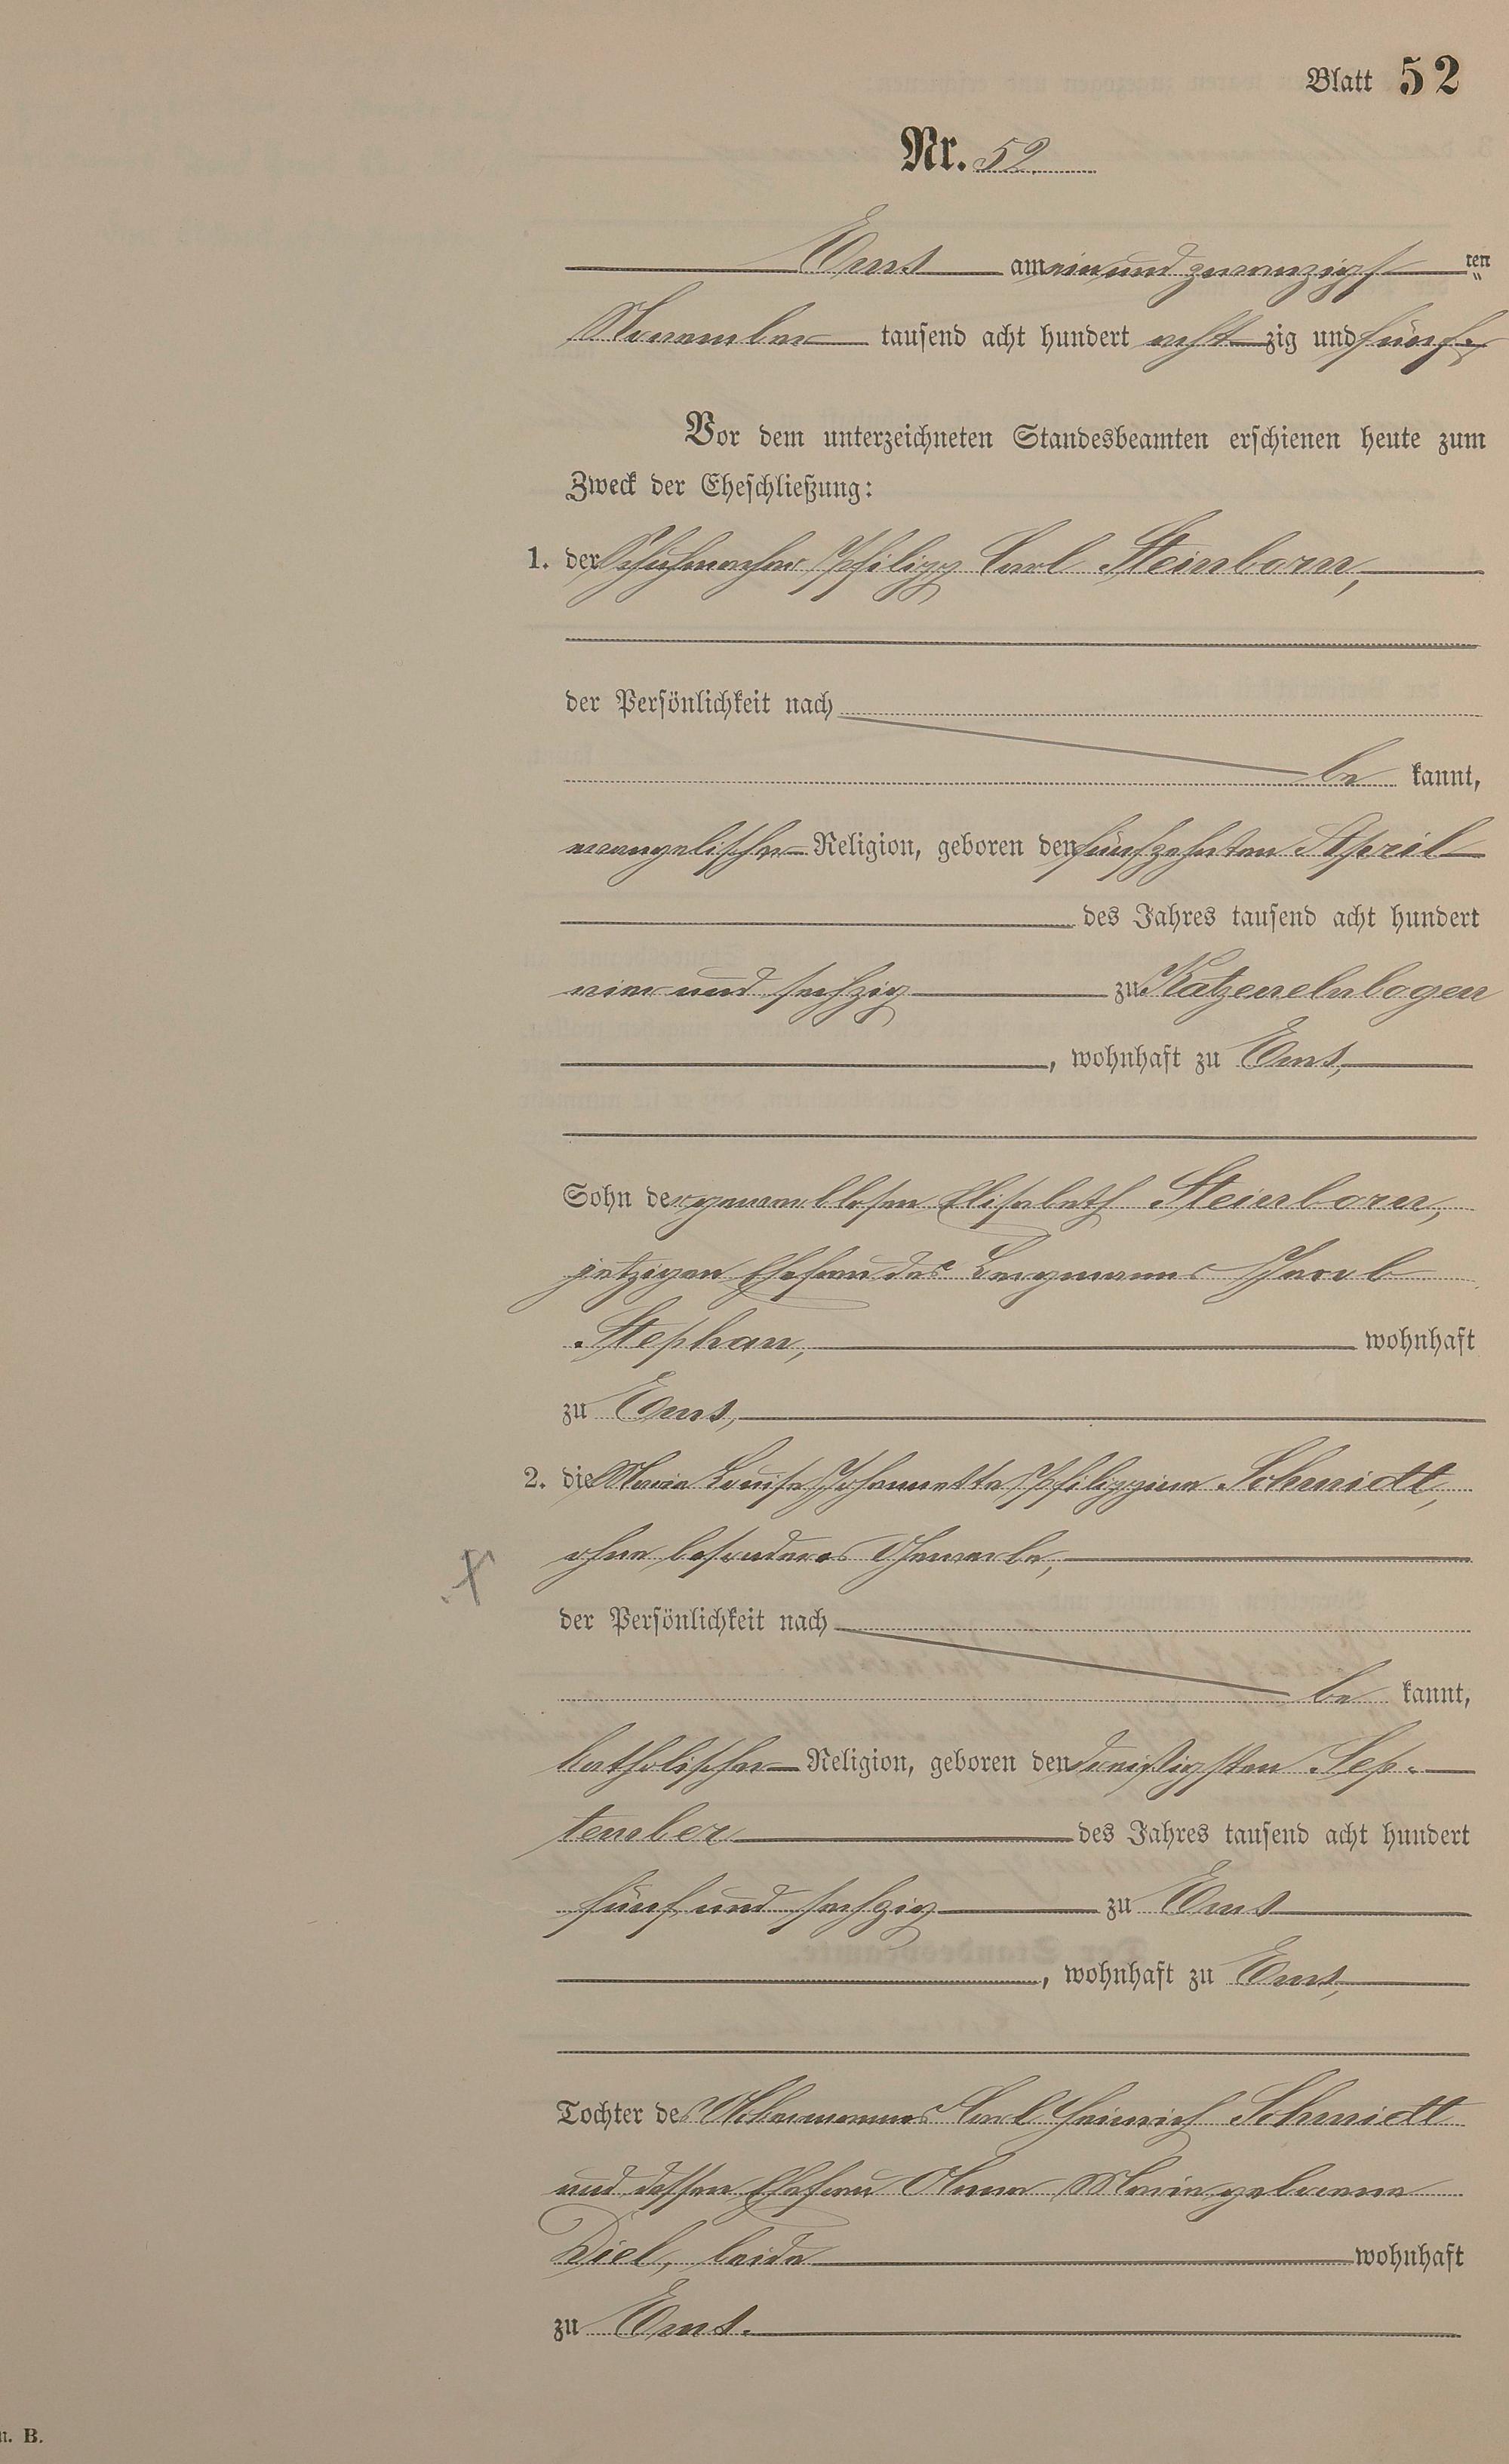 Blatt 52
Nr. 52.
Ems am ein und zwanzigst ten
November tausend acht hundert acht zig und fünf.
Vor dem unterzeichneten Standesbeamten erschienen heute zum
Zweck der Eheschließung:
1. der Schuhmacher Philipp Carl Steinborn,
der Persönlichkeit nach
be kannt,
evangelischer Religion, geboren den fünfzehnten April
des Jahres tausend acht hundert
vier und sechzig zu Katzenelnbogen
, wohnhaft zu Ems,
Sohn der gewerblosen Elisabeth Steinborn,
jetzigen Ehefrau des Bergmanns Jacob
Stephan, wohnhaft
zu Ems,
2. die Maria Louise Johannette Philippine Schmidt,
ohne besonderes Gewerbe,
der Persönlichkeit nach
be kannt,
katholischer Religion, geboren den dreißigsten Sep-
tember des Jahres tausend acht hundert
fünf und sechzig zu Ems
, wohnhaft zu Ems,
Tochter des Ackermanns Carl Heinrich Schmidt
und dessen Ehefrau Anna Maria geborene
Diel, beide wohnhaft
zu Ems.
B.